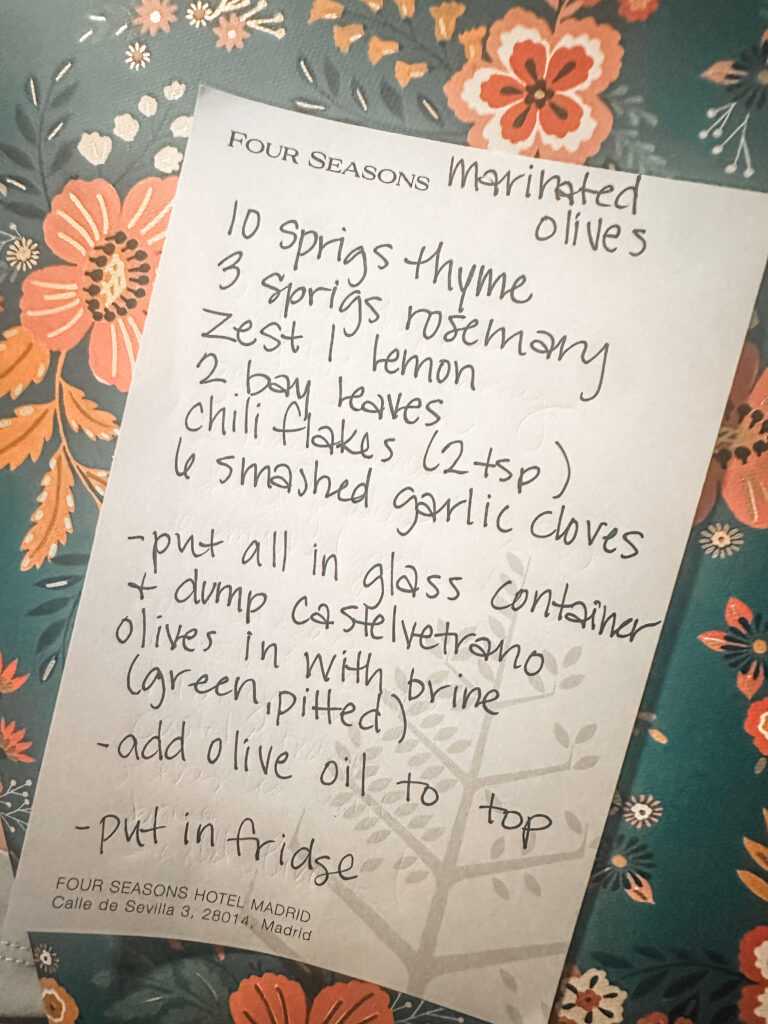 FOUR SEASONS
marinated
olives
10 sprigs thyme
3 sprigs rosemary
Zest 1 lemon
2 bay leaves
chili flakes (2 tsp)
6 smashed garlic cloves
-put all in glass container
+ dump castelvetrano
olives in with brine
(green, pitted)
-add olive oil to top
-put in fridge
FOUR SEASONS HOTEL MADRID
Calle de Sevilla 3, 28014, Madrid